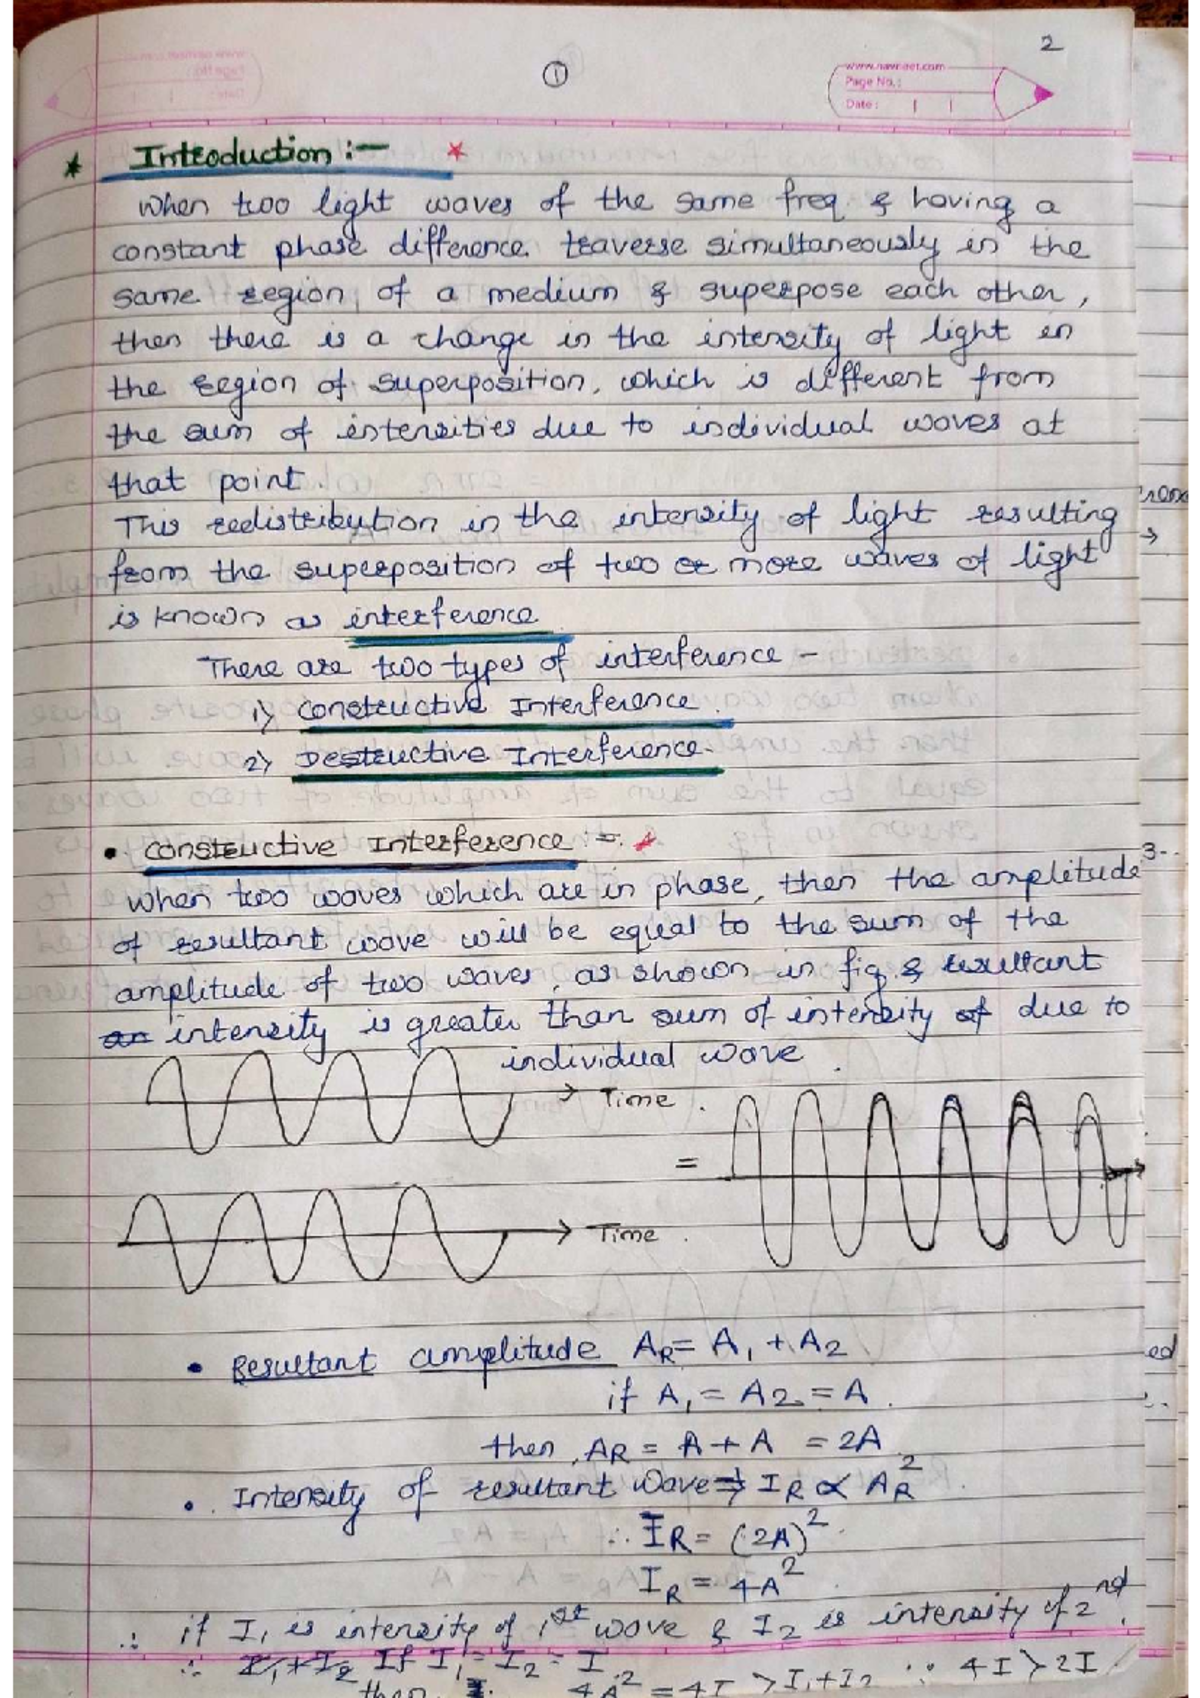 2
①
www.navneet.com
Page No.:
Date:
* Introduction :- *
When two light waves of the same freq & having a
constant phase difference traverse simultaneously in the
same region, of a medium & superpose each other,
then there is a change in the intensity of light in
the region of superposition, which is different from
the sum of intensities due to individual waves at
that point.
This redistribution in the intensity of light resulting
from the superposition of two or more waves of light
is known as interference
There are two types of interference -
1) Constructive Interference.
2) Destructive Interference.
• Constructive Interference :-
When two waves which are in phase, then the amplitude
of resultant wave will be equal to the sum of the
amplitude of two waves, as shown in fig & resultant
an intensity is greater than sum of intensity of due to
individual wave.
→ Time.
=
→ Time.
• Resultant amplitude AR = A1 + A2
if A1 = A2 = A.
then, AR = A + A = 2A
• Intensity of resultant wave ⇒ IR ∝ AR²
∴ IR = (2A)²
IR = 4A²
∴ if I1 is intensity of 1st wave & I2 is intensity of 2nd.
∴ I1+I2 If I1 = I2 = I
then 4A² = 4I > I1+I2 ∵ 4I > 2I
3-
ed